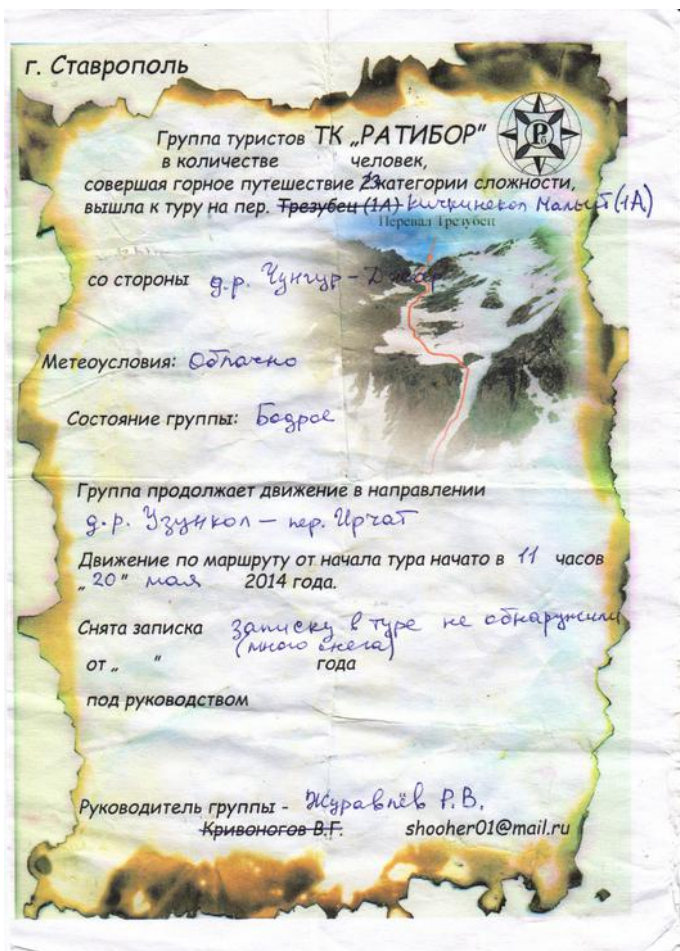 г. Ставрополь
Группа туристов ТК „РАТИБОР"
в количестве человек,
совершая горное путешествие категории сложности,
вышла к туру на пер. Трезубец (1А) Кичкинекол Малый (1А)
Перевал Трезубец
со стороны д.р. Чунгур-Джар
Метеоусловия: Облачно
Состояние группы: Бодрое
Группа продолжает движение в направлении
д.р. Узункол - пер. Ирчат
Движение по маршруту от начала тура начато в 11 часов
„20" мая 2014 года.
Снята записка записку в туре не обнаружили
(много снега)
от „ " года
под руководством
Руководитель группы - Журавлёв Р.В.
Кривоногов В.Г. shooher01@mail.ru